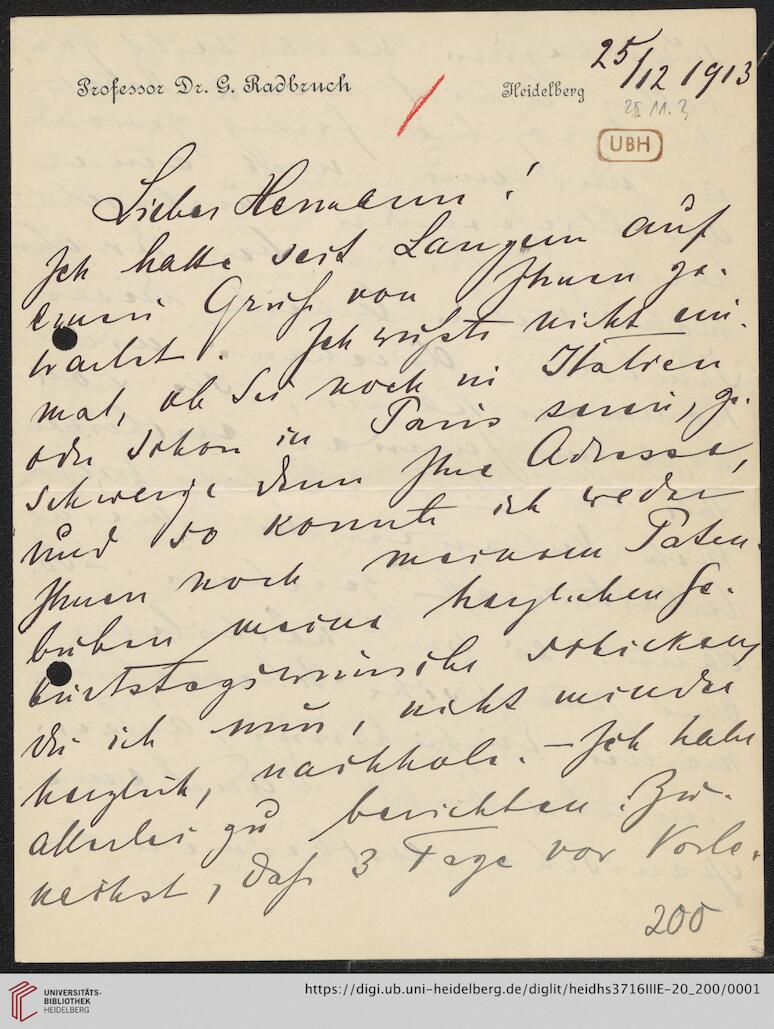 Professor Dr. G. Radbruch
Heidelberg
25/12 1913
UBH
Lieber Hermann!
Ich hatte seit Langem auf
einen Gruß von Ihnen ge-
wartet. Ich wußte nicht ein-
mal, ob Sie noch in Italien
oder schon in Paris seien, ge-
schweige denn Ihre Adresse,
und so konnte ich weder
Ihnen noch meinem Paten-
buben meine herzlichen Ge-
burtstagswünsche schicken,
die ich nun, nicht minder
herzlich, nachhole. – Ich habe
allerlei zu berichten. Zu-
nächst, daß 3 Tage vor Vorle-
200
UNIVERSITÄTS-
BIBLIOTHEK
HEIDELBERG
https://digi.ub.uni-heidelberg.de/diglit/heidhs3716IIIE-20_200/0001